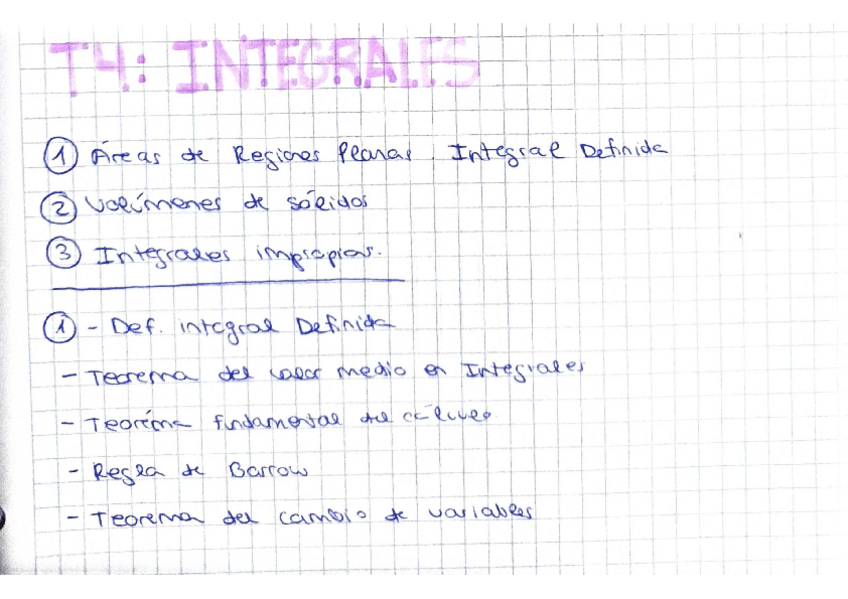 T4: INTEGRALES
① Áreas de Regiones Planas. Integral Definida
② Volúmenes de sólidos
③ Integrales impropias.
① - Def. integral Definida
- Teorema del valor medio en Integrales
- Teorema fundamental del cálculo
- Regla de Barrow
- Teorema del cambio de variables